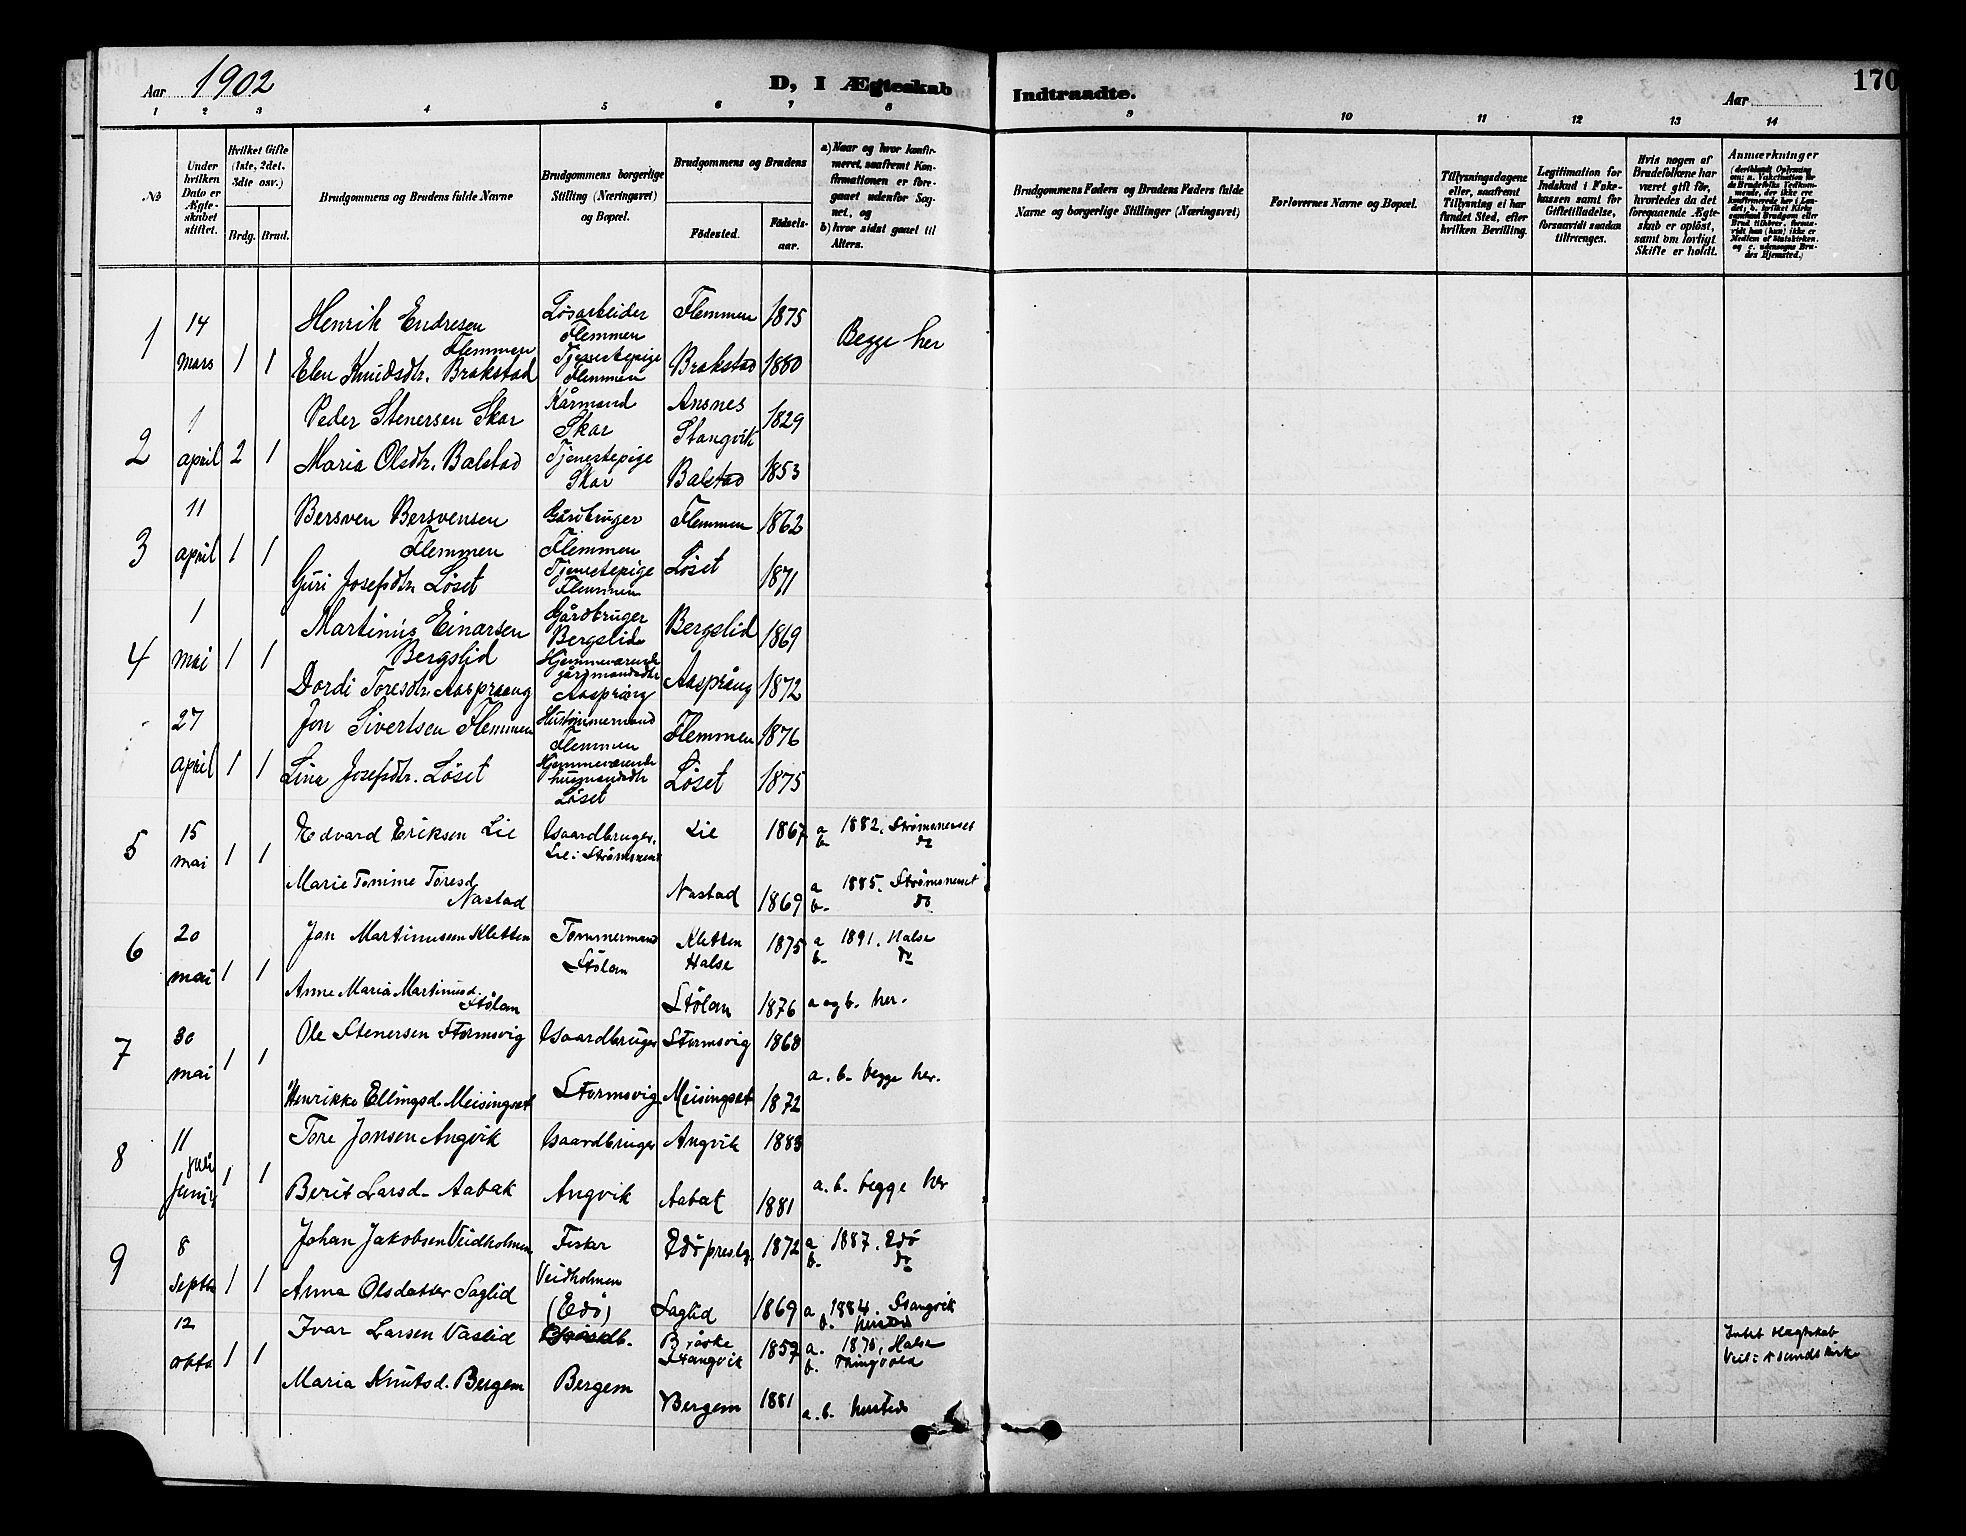 Aar 1902
D, I Ægteskab Indtraadte.
Aar
170
1 2 3 4 5 6 7 8 9 10 11 12 13 14
No
Under hvilken Dato er Ægteskabet stiftet.
Hvilket Gifte (1ste, 2det, 3die osv.)
Brdg. Brud.
Brudgommens og Brudens fulde Navne
Brudgommens borgerlige Stilling (Næringsvei) og Bopæl.
Brudgommens og Brudens
Fødested.
Fødselsaar.
a) Naar og hvor konfirmeret, saafremt Konfirmationen er foregaaet udenfor Sognet, og
b) hvor sidst gaaet til Alters.
Brudgommens Faders og Brudens Faders fulde Navne og borgerlige Stillinger (Næringsvei)
Forlovernes Navne og Bopæl.
Tillysningsdagene eller, saafremt Tillysning ei har fundet Sted, efter hvilken Bevilling.
Legitimation for Indskud i Enkekassen samt for Giftetilladelse, forsaavidt saadan tiltrænges.
Hvis nogen af Brudefolkene har været gift før, hvorledes da det foregaaende Ægteskab er opløst, samt om lovligt Skifte er holdt.
Anmærkninger
1 14 mars 1 1 Henrik Endresen Flemmen Løsarbeider Flemmen Flemmen 1875 Begge her
Elen Knudsdtr. Brakstad Tjenestepige Flemmen Brakstad 1880
2 1 april 2 1 Peder Stenersen Skar Kårmand Skar Ansnes Stangvik 1829
Maria Olsdtr. Balstad Tjenestepige Skar Balstad 1853
3 11 april 1 1 Bersven Bersvensen Flemmen Gårdbruger Flemmen Flemmen 1862
Guri Josefsdtr. Løset Tjenestepige Flemmen Løset 1871
4 1 mai 1 1 Martinus Einarsen Bergslid Gårdbruger Bergslid Bergslid 1869
Dordi Toresdtr. Aasprang Hjemmeværende gårdmandsdtr Aasprang Aasprang 1872
27 april 1 1 Jon Sivertsen Flemmen Flemmen Flemmen 1876
Line Josefsdtr. Løset Hjemmeværende husmandsdtr Løset Løset 1875
5 15 mai 1 1 Edvard Eriksen Lie Gaardbruger, Lie i Strømsneset Lie 1867 a 1882. Strømsneset b do
Marie Toresd. Nastad Nastad 1869 a 1885. Strømsneset b. do
6 20 mai 1 1 Jon Martinussen Kletten Tømmermand Stølan Kletten Halse 1875 a 1891. Halse b. do
Anne Maria Martinusd. Stølan Stølan 1876 a og b. her.
7 30 mai 1 1 Ole Stenersen Stormsvig Gaardbruger Stormsvig 1868
Henrikke Ellingsd. Meisingset Stormsvig Meisingset 1872 a. b. begge her.
8 11 juli juni 1 1 Tore Jonsen Angvik Gaardbruger Angvik 1883
Berit Larsd. Aabak Angvik Aabak 1881 a. b. begge her
9 8 septbr 1 1 Johan Jakobsen Veidholmen Fisker Edø prestg. 1872 a 1887. Edø b. do
Anna Olsdatter Saglid Veidholmen (Edø) Saglid 1869 a 1884. Stangvik b. hersteds
12 oktb 1 1 Ivar Larsen Vaslid Bråske Stangvik 1857 a. Halse b. Tingvold
Maria Knutsd. Bergem Bergem Bergem 1881 a. b. hersteds